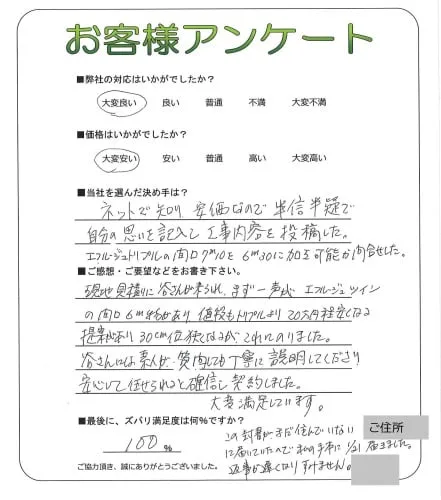 お客様アンケート
■弊社の対応はいかがでしたか？
大変良い 良い 普通 不満 大変不満
■価格はいかがでしたか？
大変安い 安い 普通 高い 大変高い
■当社を選んだ決め手は？
ネットで知り、安価なので半信半疑で
自分の思いを記入して工事内容を投稿した。
エフルージュトリプルの間口7m10を6m30に加工可能か問合せした。
■ご感想・ご要望などをお書き下さい。
現地見積りに谷さんが来られ、まず一声がエフルージュツイン
の間口6m があり 値段もトリプルより20万円程安くなる
提案があり 30cm位狭くなるがこれにのりました。
谷さんには素人が 質問しても丁寧に説明してくださり
安心して任せられると確信し契約しました。
大変満足しています。
■最後に、ズバリ満足度は何%ですか？
100%
ご協力頂き、誠にありがとうございました。
ご住所
この封書がまだ住んでいない
に届いていたので私の手本に 1/31 届きました。
返事が遅くなりすみません。